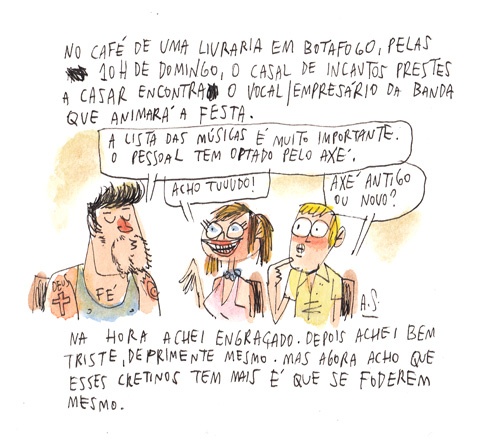 NO CAFÉ DE UMA LIVRARIA EM BOTAFOGO, PELAS
10H DE DOMINGO, O CASAL DE INCAUTOS PRESTES
A CASAR ENCONTRA O VOCAL/EMPRESÁRIO DA BANDA
QUE ANIMARÁ A FESTA.
A LISTA DAS MÚSICAS É MUITO IMPORTANTE.
O PESSOAL TEM OPTADO PELO AXÉ.
ACHO TUUUDO!
AXÉ ANTIGO
OU NOVO?
DEUS
FÉ
A.S.
NA HORA ACHEI ENGRAÇADO. DEPOIS ACHEI BEM
TRISTE, DEPRIMENTE MESMO. MAS AGORA ACHO QUE
ESSES CRETINOS TEM MAIS É QUE SE FODEREM
MESMO.